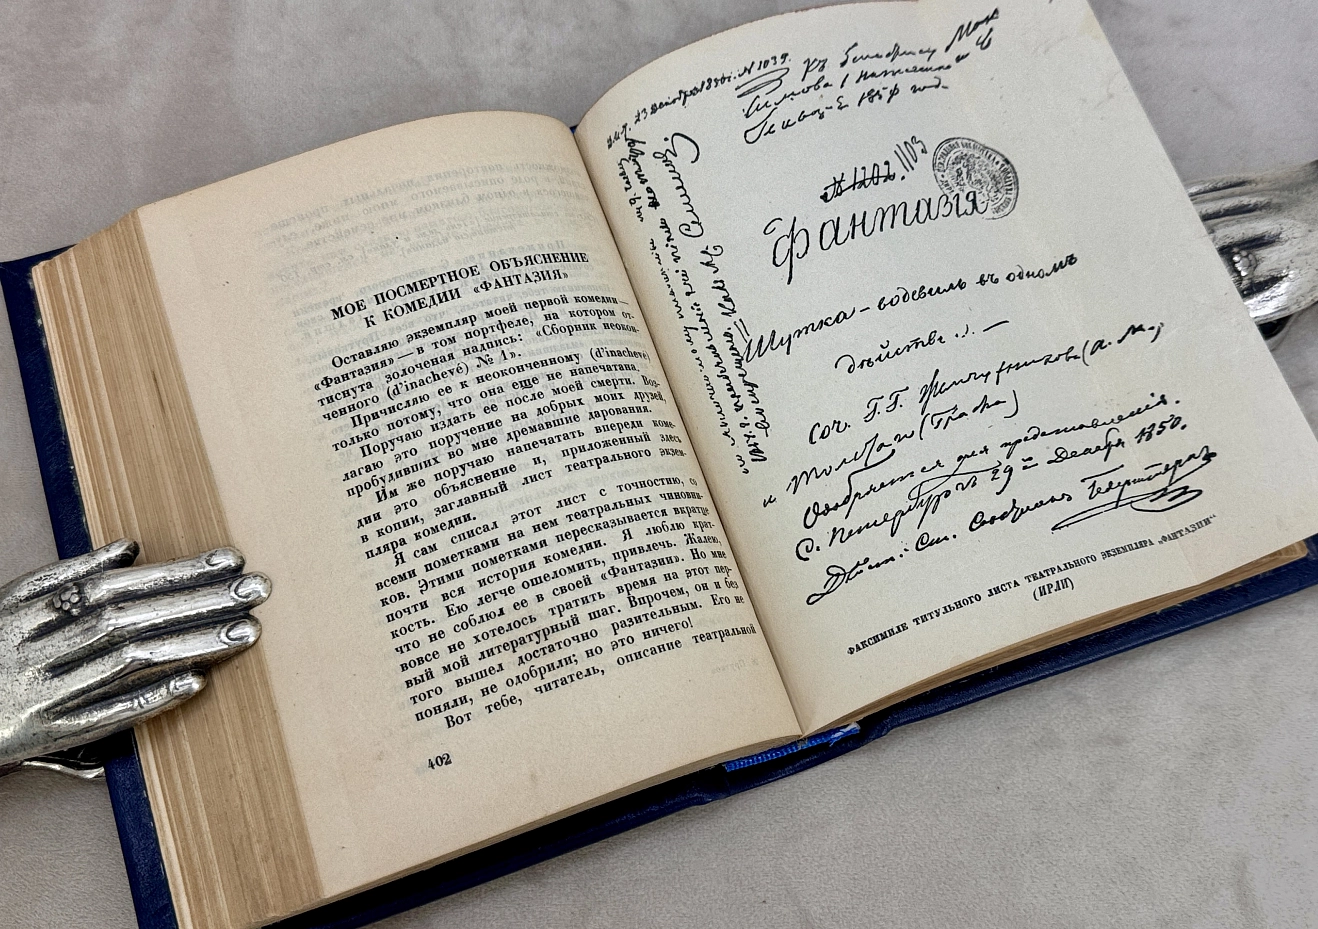 МОЕ ПОСМЕРТНОЕ ОБЪЯСНЕНИЕ
К КОМЕДИИ «ФАНТАЗИЯ»
Оставляю экземпляр моей первой комедии —
«Фантазия» — в том портфеле, на котором от-
тиснута золоченая надпись: «Сборник неокон-
ченного (d'inachevé) № 1».
Причисляю ее к неоконченному (d'inachevé)
только потому, что она еще не напечатана.
Поручаю издать ее после моей смерти. Воз-
лагаю это поручение на добрых моих друзей,
пробудивших во мне дремавшие дарования.
Им же поручаю напечатать впереди коме-
дии это объяснение и, приложенный здесь
в копии, заглавный лист театрального экзем-
пляра комедии.
Я сам списал этот лист с точностью, со
всеми пометками на нем театральных чиновни-
ков. Этими пометками пересказывается вкратце
почти вся история комедии. Я люблю крат-
кость. Ею легче ошеломить, привлечь. Жалею,
что не соблюл ее в своей «Фантазии». Но мне
вовсе не хотелось тратить время на этот пер-
вый мой литературный шаг. Впрочем, он и без
того вышел достаточно разительным. Его не
поняли, не одобрили; но это ничего!
Вот тебе, читатель, описание театральной
402
23 Декабря 1850 г. N 1039.
Къ бенефису Мак
симова 1
185 год.
№ 1202. 1103
Фантазія
Шутка-водевиль въ одномъ
дѣйствi
Соч. Г.Г. Жемчужникова (А. М.)
и Толстаго (Графа)
Одобряется для представленія.
С. Петербургъ 29 Декабря 1850.
Дѣйст. Ст. Совѣтникъ Гедерштернъ
ФАКСИМИЛЕ ТИТУЛЬНОГО ЛИСТА ТЕАТРАЛЬНОГО ЭКЗЕМПЛЯРА „ФАНТАЗИИ“
(ИРЛИ)